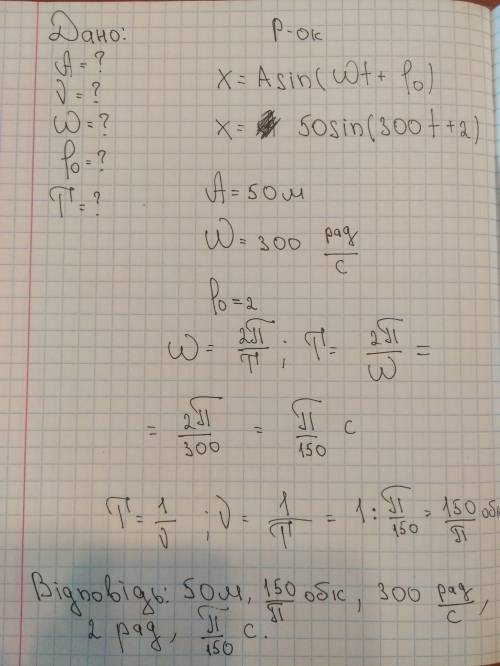 Дано:
А = ?
ν = ?
W = ?
φ₀ = ?
T = ?
Р-ок
X = A sin(Wt + φ₀)
X = 50sin(300t+2)
A = 50м
W = 300 рад/с
φ₀ = 2
W = 2π/T ; T = 2π/W =
= 2π/300 = π/150 с
T = 1/ν ; ν = 1/T = 1 : π/150 = 150/π об
Відповідь: 50м, 150/π обк, 300 рад/с,
2 рад, π/150 с.